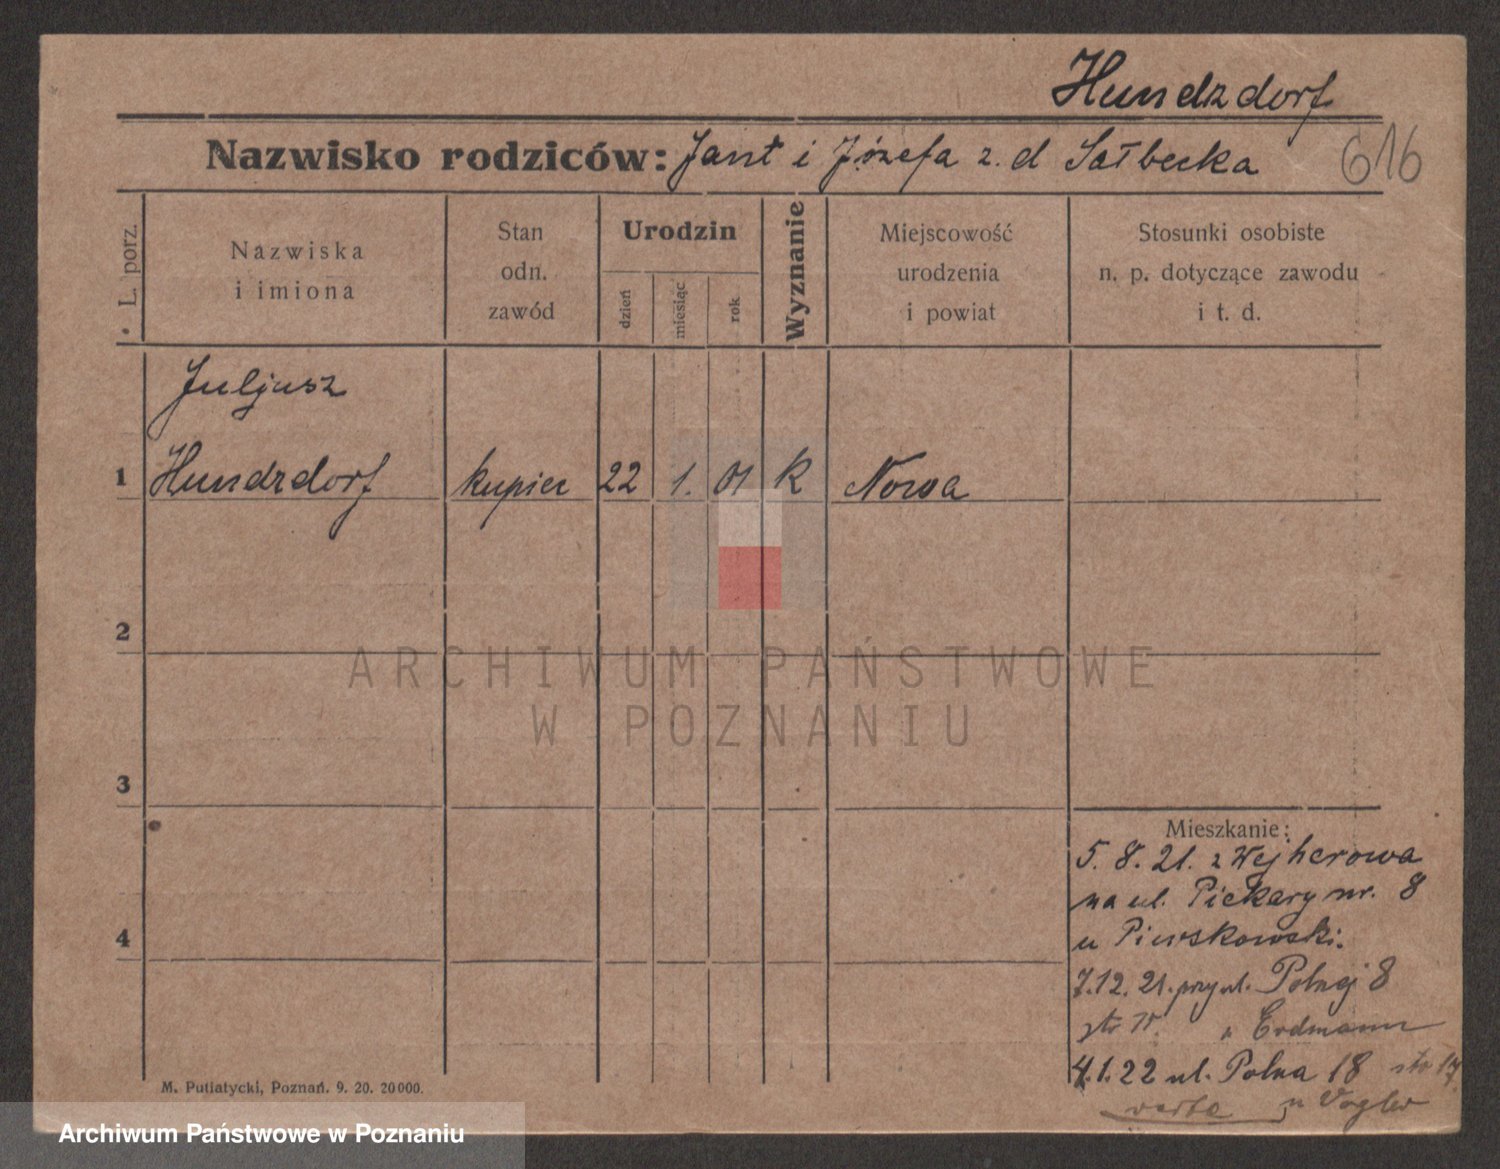 Hundzdorf
Nazwisko rodziców: Jant i Józefa z. d Sałbecka
616
L. porz.
Nazwiska i imiona
Stan odn. zawód
Urodzin
dzień
miesiąc
rok
Wyznanie
Miejscowość urodzenia i powiat
Stosunki osobiste n. p. dotyczące zawodu i t. d.
Juljusz
1 Hundzdorf kupiec 22 1. 01 K Nowa
2
ARCHIWUM PAŃSTWOWE
W POZNANIU
3
Mieszkanie:
5. 8. 21. z Wejherowa
na ul. Piekary nr. 8
u Piwskowski.
4
7.12. 21. przy ul. Polnej 8
u Erdmann
4.1.22 ul. Polna 18
u Vogler
M. Putiatycki, Poznań. 9. 20. 20000.
Archiwum Państwowe w Poznaniu